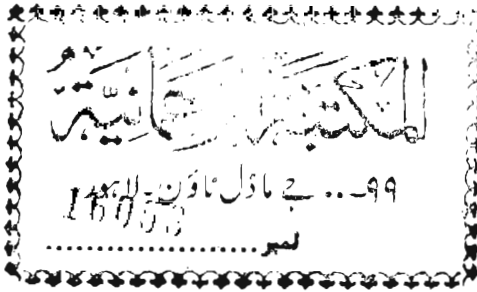 المكتبة الرحمانية
۹۹-.. جے ماڈل ٹاؤن-لاہور
نمبر....................